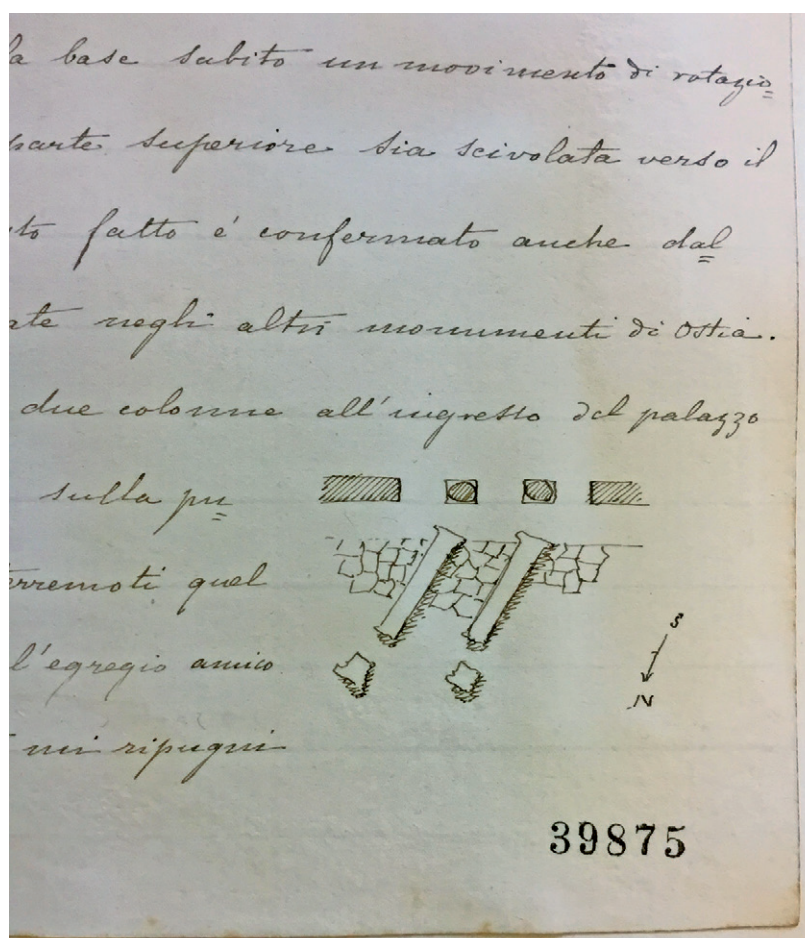 la base subito un movimento di rotazio=
parte superiore sia scivolata verso il
to fatto é confermato anche dal=
ate negli altri monumenti di Ostia.
due colonne all'ingresso del palazzo
sulla pu=
terremoti quel
l'egregio amico
mi ripugni
S
N
39875